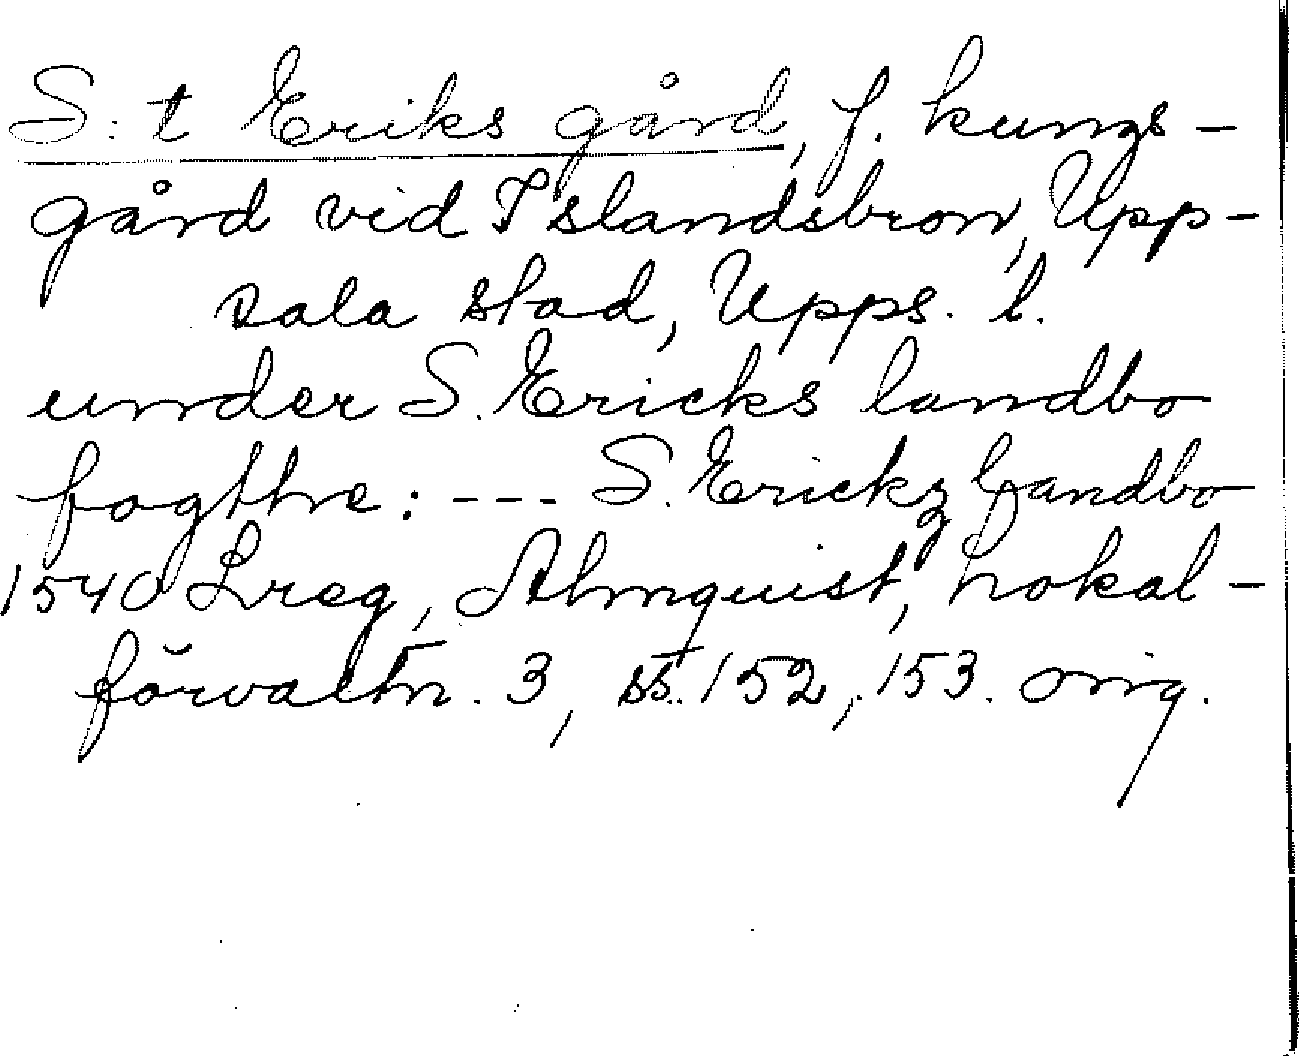 S:t Eriks gård, f. kungs-
gård vid Islandsbron, Upp-
sala stad, Upps. l.
under S. Ericks landbo
fogthe: --- S. Erickz landbo
1540 Lreg, Almquist, Lokal-
förvaltn. 3, ss. 152, 153. orig.